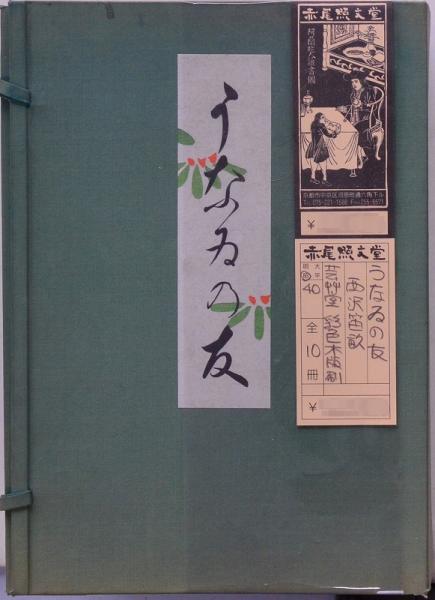 うなゐの友
赤尾照文堂
京都市中京区河原町通六角下ル
Tel. 075-221-1588 Fax. 255-5571
¥
赤尾照文堂
うなゐの友
西沢笛畝
芸艸堂 彩色木版刷
大正
昭
40
全10冊
¥